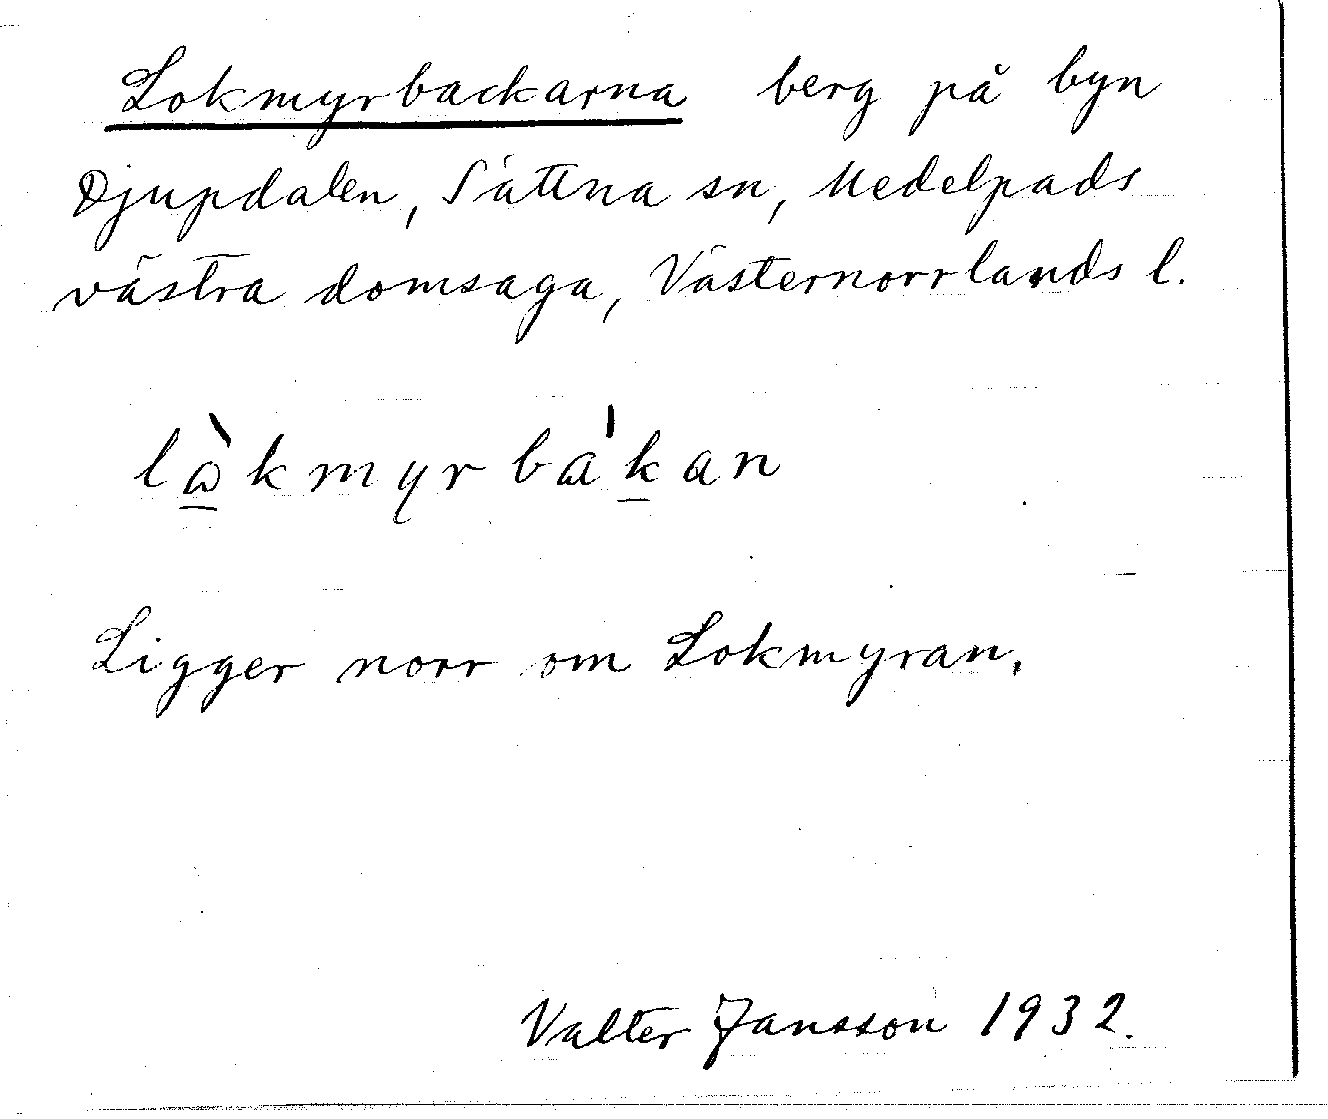 Lokmyrbackarna berg på byn
Djupdalen, Sättna sn, Medelpads
västra domsaga, Västernorrlands l.
lò̠kmyrba'k̠an
Ligger norr om Lokmyran.
Valter Jansson 1932.